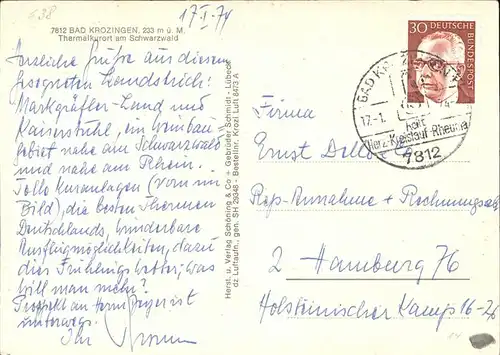 638
17.I.74
7812 BAD KROZINGEN, 233 m ü. M.
Thermalkurort am Schwarzwald
Herzliche Grüße aus diesem
gesegneten Landstrich!
Markgräfler-Land und
Kaiserstuhl, im Weinbau=
gebiet nahe am Schwarzwald
und nahe am Rhein.
Tolle Kuranlagen (vorn im
Bild), die besten Thermen
Deutschlands, wunderbare
Ausflugmöglichkeiten, dazu
dies Frühlingswetter; was
will man mehr?
Prospekt an Herrn ist
unterwegs.
Ihr
Herst. u. Verlag Schöning & Co + Gebrüder Schmidt - Lübeck
dz Luftaufn., gen. SH 29348 - Bestellnr. Krozi Luft 8473 A
30 DEUTSCHE BUNDESPOST
BAD KROZINGEN
17.-1.
heilt
Herz-Kreislauf-Rheuma
7812
Firma
Ernst
Rep-Annahme + Rechnungsabt
2 Hamburg 76
Holsteinischer Kamp 16-26